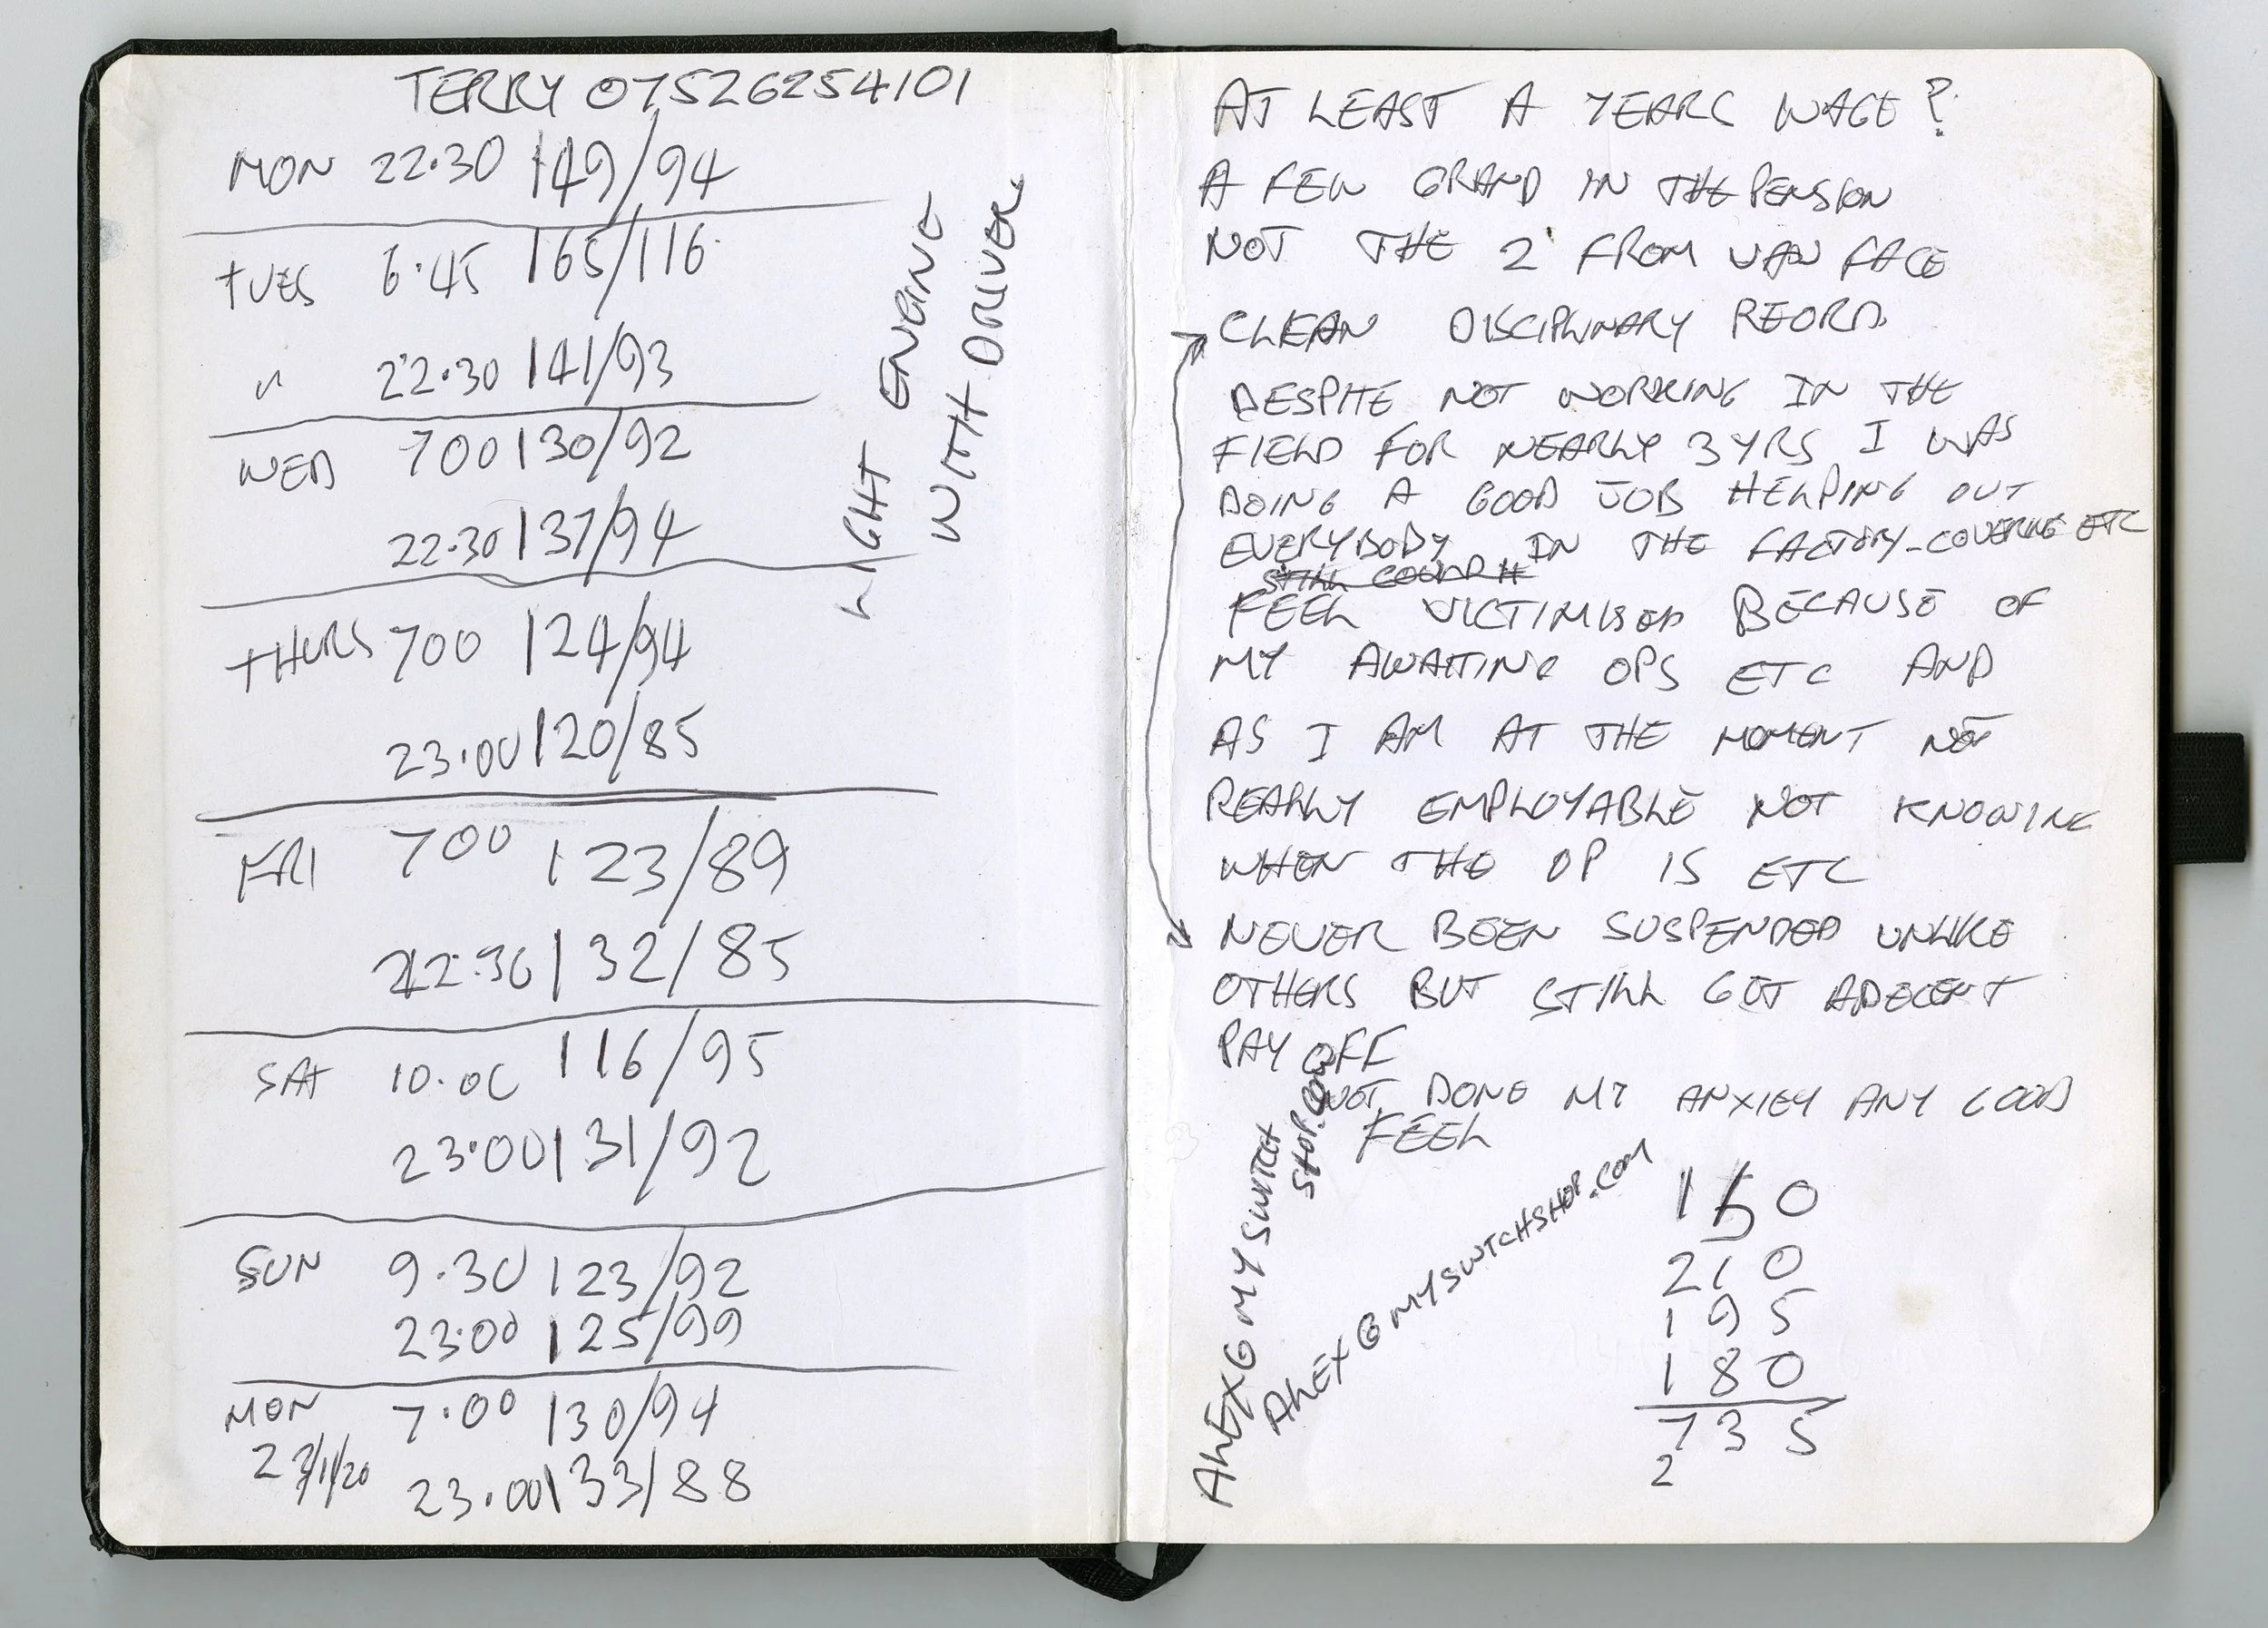 TERRY 07526254101
MON 22.30 149/94
TUES 6.45 165/116
" 22.30 141/93
WED 700 130/92
22.30 137/94
THURS 700 124/94
23.00 120/85
FRI 700 123/89
22.30 132/85
SAT 10.00 116/95
23.00 131/92
SUN 9.30 123/92
23.00 125/99
MON 7.00 130/94
23.00 133/88
LIGHT ENGINE
WITH DRIVER
AT LEAST A YEARS WAGE?
A FEW GRAND IN THE PENSION
NOT THE 2 FROM VAN FACE
CLEAN DISCIPLINARY REORD
DESPITE NOT WORKING IN THE
FIELD FOR NEARLY 3 YRS I WAS
DOING A GOOD JOB HELPING OUT
EVERYBODY IN THE FACTORY - COVERING ETC
STILL COULD
FEEL VICTIMISED BECAUSE OF
MY AWAITING OPS ETC AND
AS I AM AT THE MOMENT NOT
REALLY EMPLOYABLE NOT KNOWING
WHEN THE OP IS ETC
NEVER BEEN SUSPENDED UNLIKE
OTHERS BUT STILL GOT A DECENT
PAY OFF
NOT DONE MY ANXIEY ANY GOOD
FEEL
ALEX@MYSWITCH
SHOP.COM
ALEX@MYSWITCHSHOP.COM
150
210
195
180
735
2